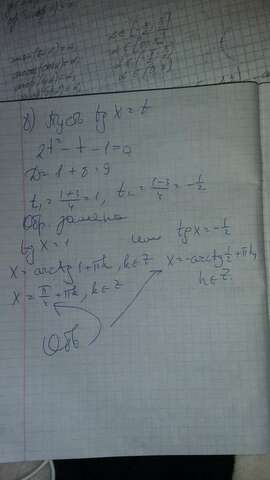 б) Пусть tg x = t
2t² - t - 1 = 0
D = 1 + 8 = 9
t₁ = (1+3)/4 = 1, t₂ = (1-3)/4 = -1/2
Обр. замена
tg x = 1 или tg x = -1/2
x = arctg 1 + πk, k ∈ Z
x = π/4 + πk, k ∈ Z
x = -arctg 1/2 + πk, k ∈ Z.
Отв